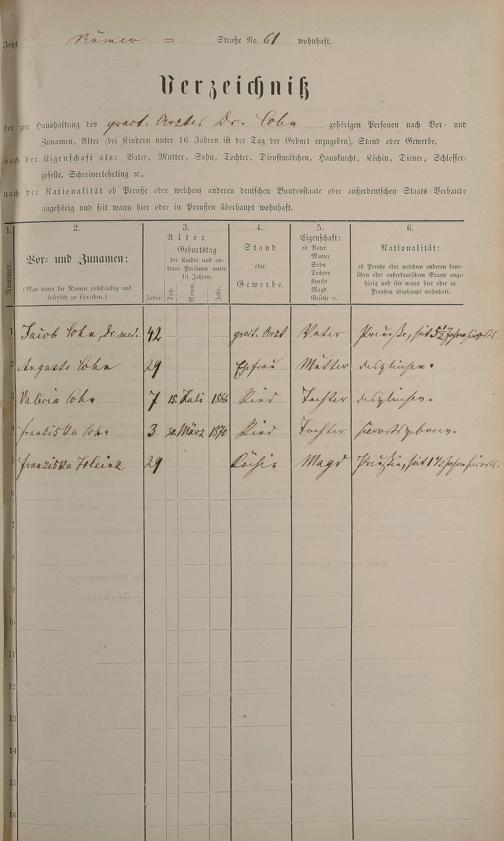 Jetzt Römer = Straße No. 61 wohnhaft.
Verzeichniß
der zur Haushaltung des pract. Arztes Dr. Cohn gehörigen Personen nach Vor- und
Zunamen, Alter (bei Kindern unter 16 Jahren ist der Tag der Geburt anzugeben), Stand oder Gewerbe,
nach der Eigenschaft als: Vater, Mutter, Sohn, Tochter, Dienstmädchen, Hausknecht, Köchin, Diener, Schlosser-
geselle, Schreinerlehrling ꝛc.,
nach der Nationalität ob Preuße oder welchem anderen deutschen Bundesstaate oder außerdeutschen Staats-Verbande
angehörig und seit wann hier oder in Preußen überhaupt wohnhaft.
1. 2. 3. 4. 5. 6.
Nummer.
Vor- und Zunamen:
(Man bittet die Namen vollständig und
leserlich zu schreiben.)
Alter
Geburtstag
der Kinder und an-
derer Personen unter
16 Jahren.
Jahre Tag. Monat. Jahr.
Stand
oder
Gewerbe.
Eigenschaft:
ob Vater
Mutter
Sohn
Tochter
Knecht
Magd
Geselle ꝛc.
Nationalität:
ob Preuße oder welchem anderen deut-
schen oder außerdeutschen Staate ange-
hörig und seit wann hier oder in
Preußen überhaupt wohnhaft.
1 Jacob Cohn, Dr. med. 42 pract. Arzt Vater Preuße, seit 5½ Jahren hierorts.
2 Auguste Cohn 29 Ehefrau Mutter desgleichen.
3 Valeria Cohn 7 15. Juli 1866 Kind Tochter desgleichen.
4 Franziska Cohn 3 20. März 1870 Kind Tochter hierorts geboren.
5 Franziska 29 Köchin Magd Preußin, seit 1½ Jahren hierorts.
6
7
8
9
10
11
12
13
14
15
16